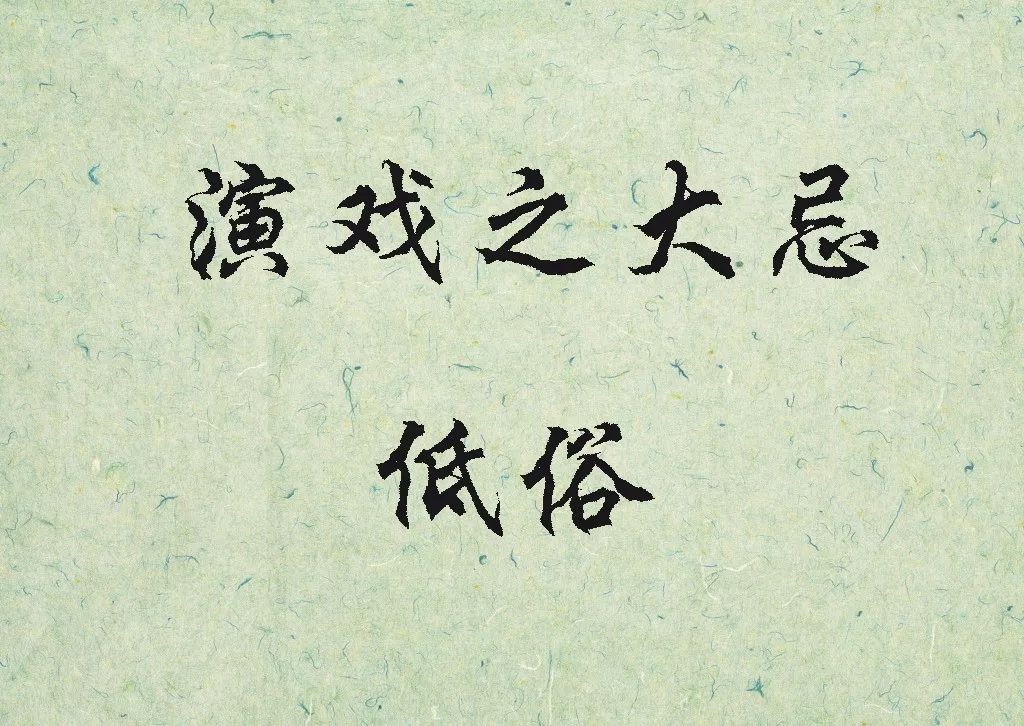 演戏之大忌
低俗